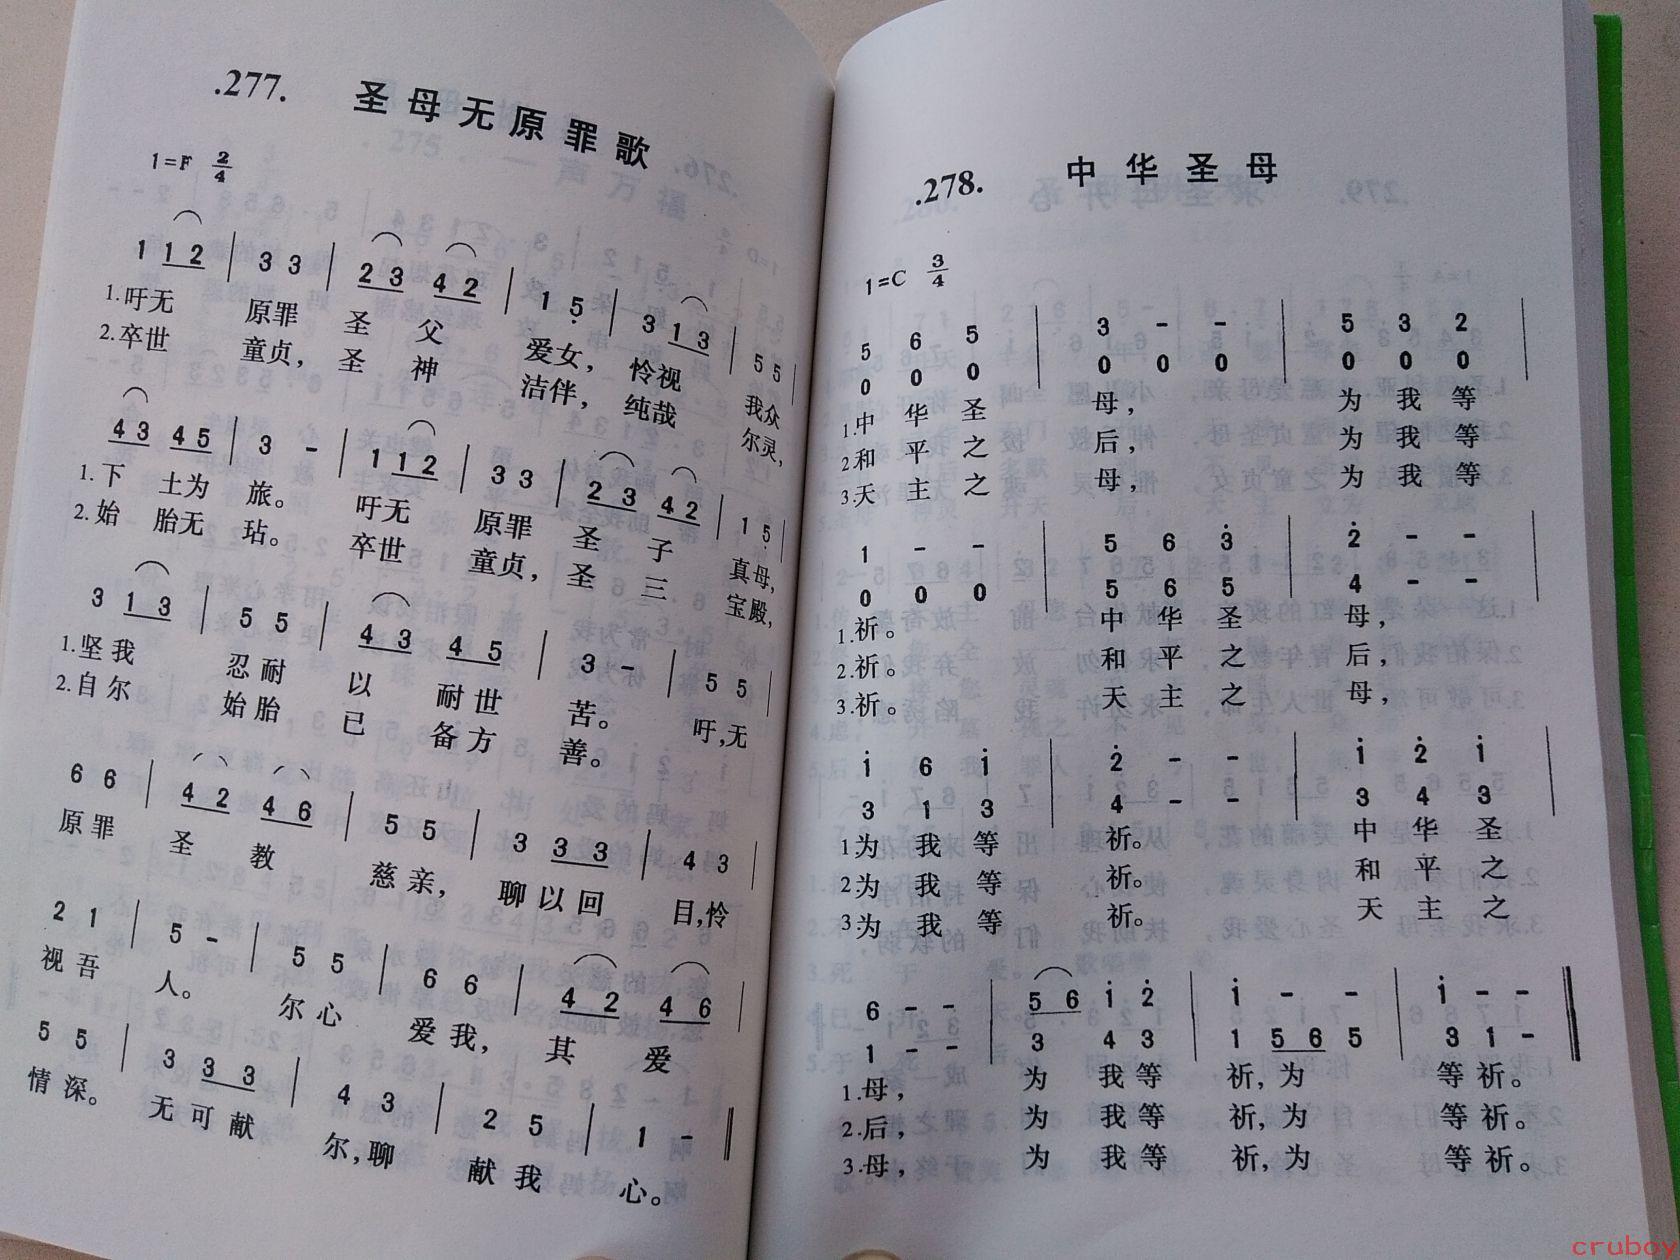 .277. 圣母无原罪歌
1=F 2/4
1 1 2 | 3 3 | 2 3 4 2 | 1 5 | 3 1 3 | 5 5 |
1.吁无 原罪 圣 父 爱女，怜视 我众
2.卒世 童贞，圣 神 洁伴，纯哉 尔灵，
4 3 4 5 | 3 - | 1 1 2 | 3 3 | 2 3 4 2 | 1 5 |
1.下 土为 旅。 吁无 原罪 圣 子 真母，
2.始 胎无 玷。 卒世 童贞，圣 三 宝殿，
3 1 3 | 5 5 | 4 3 4 5 | 3 - | 5 5 |
1.坚我 忍耐 以 耐世 苦。 吁,无
2.自尔 始胎 已 备方 善。
6 6 | 4 2 4 6 | 5 5 | 3 3 3 | 4 3
原罪 圣 教 慈亲， 聊以回 目,怜
2 1 | 5 - | 5 5 | 6 6 | 4 2 4 6 |
视吾 人。 尔心 爱我， 其 爱
5 5 | 3 3 3 | 4 3 | 2 5 | 1 -
情深。 无可献 尔,聊 献我 心。
.278. 中华圣母
1=C 3/4
5 6 5 | 3 - - | 5 3 2 |
0 0 0 0 0 0 0 0 0
1.中 华 圣 母， 为 我 等
2和 平 之 后， 为 我 等
3.天 主 之 母， 为 我 等
1 - - | 5 6 3̇ | 2̇ - - |
0 0 0 5 6 5 4 - -
1.祈。 中 华 圣 母，
2.祈。 和 平 之 后，
3.祈。 天 主 之 母，
1̇ 6 1̇ | 2̇ - - | 1̇ 2̇ 1̇ |
3 1 3 4 - - 3 4 3
1为 我 等 祈。 中 华 圣
2为 我 等 祈。 和 平 之
3为 我 等 祈。 天 主 之
6 - - | 5 6 1̇ 2̇ | 1̇ - - | 1̇ - -
1 - - 3 4 3 1 5 6 5 3 1 -
1.母， 为 我等 祈,为 等祈。
2.后， 为 我等 祈,为 等祈。
3.母， 为 我等 祈,为 等祈。
cruboy